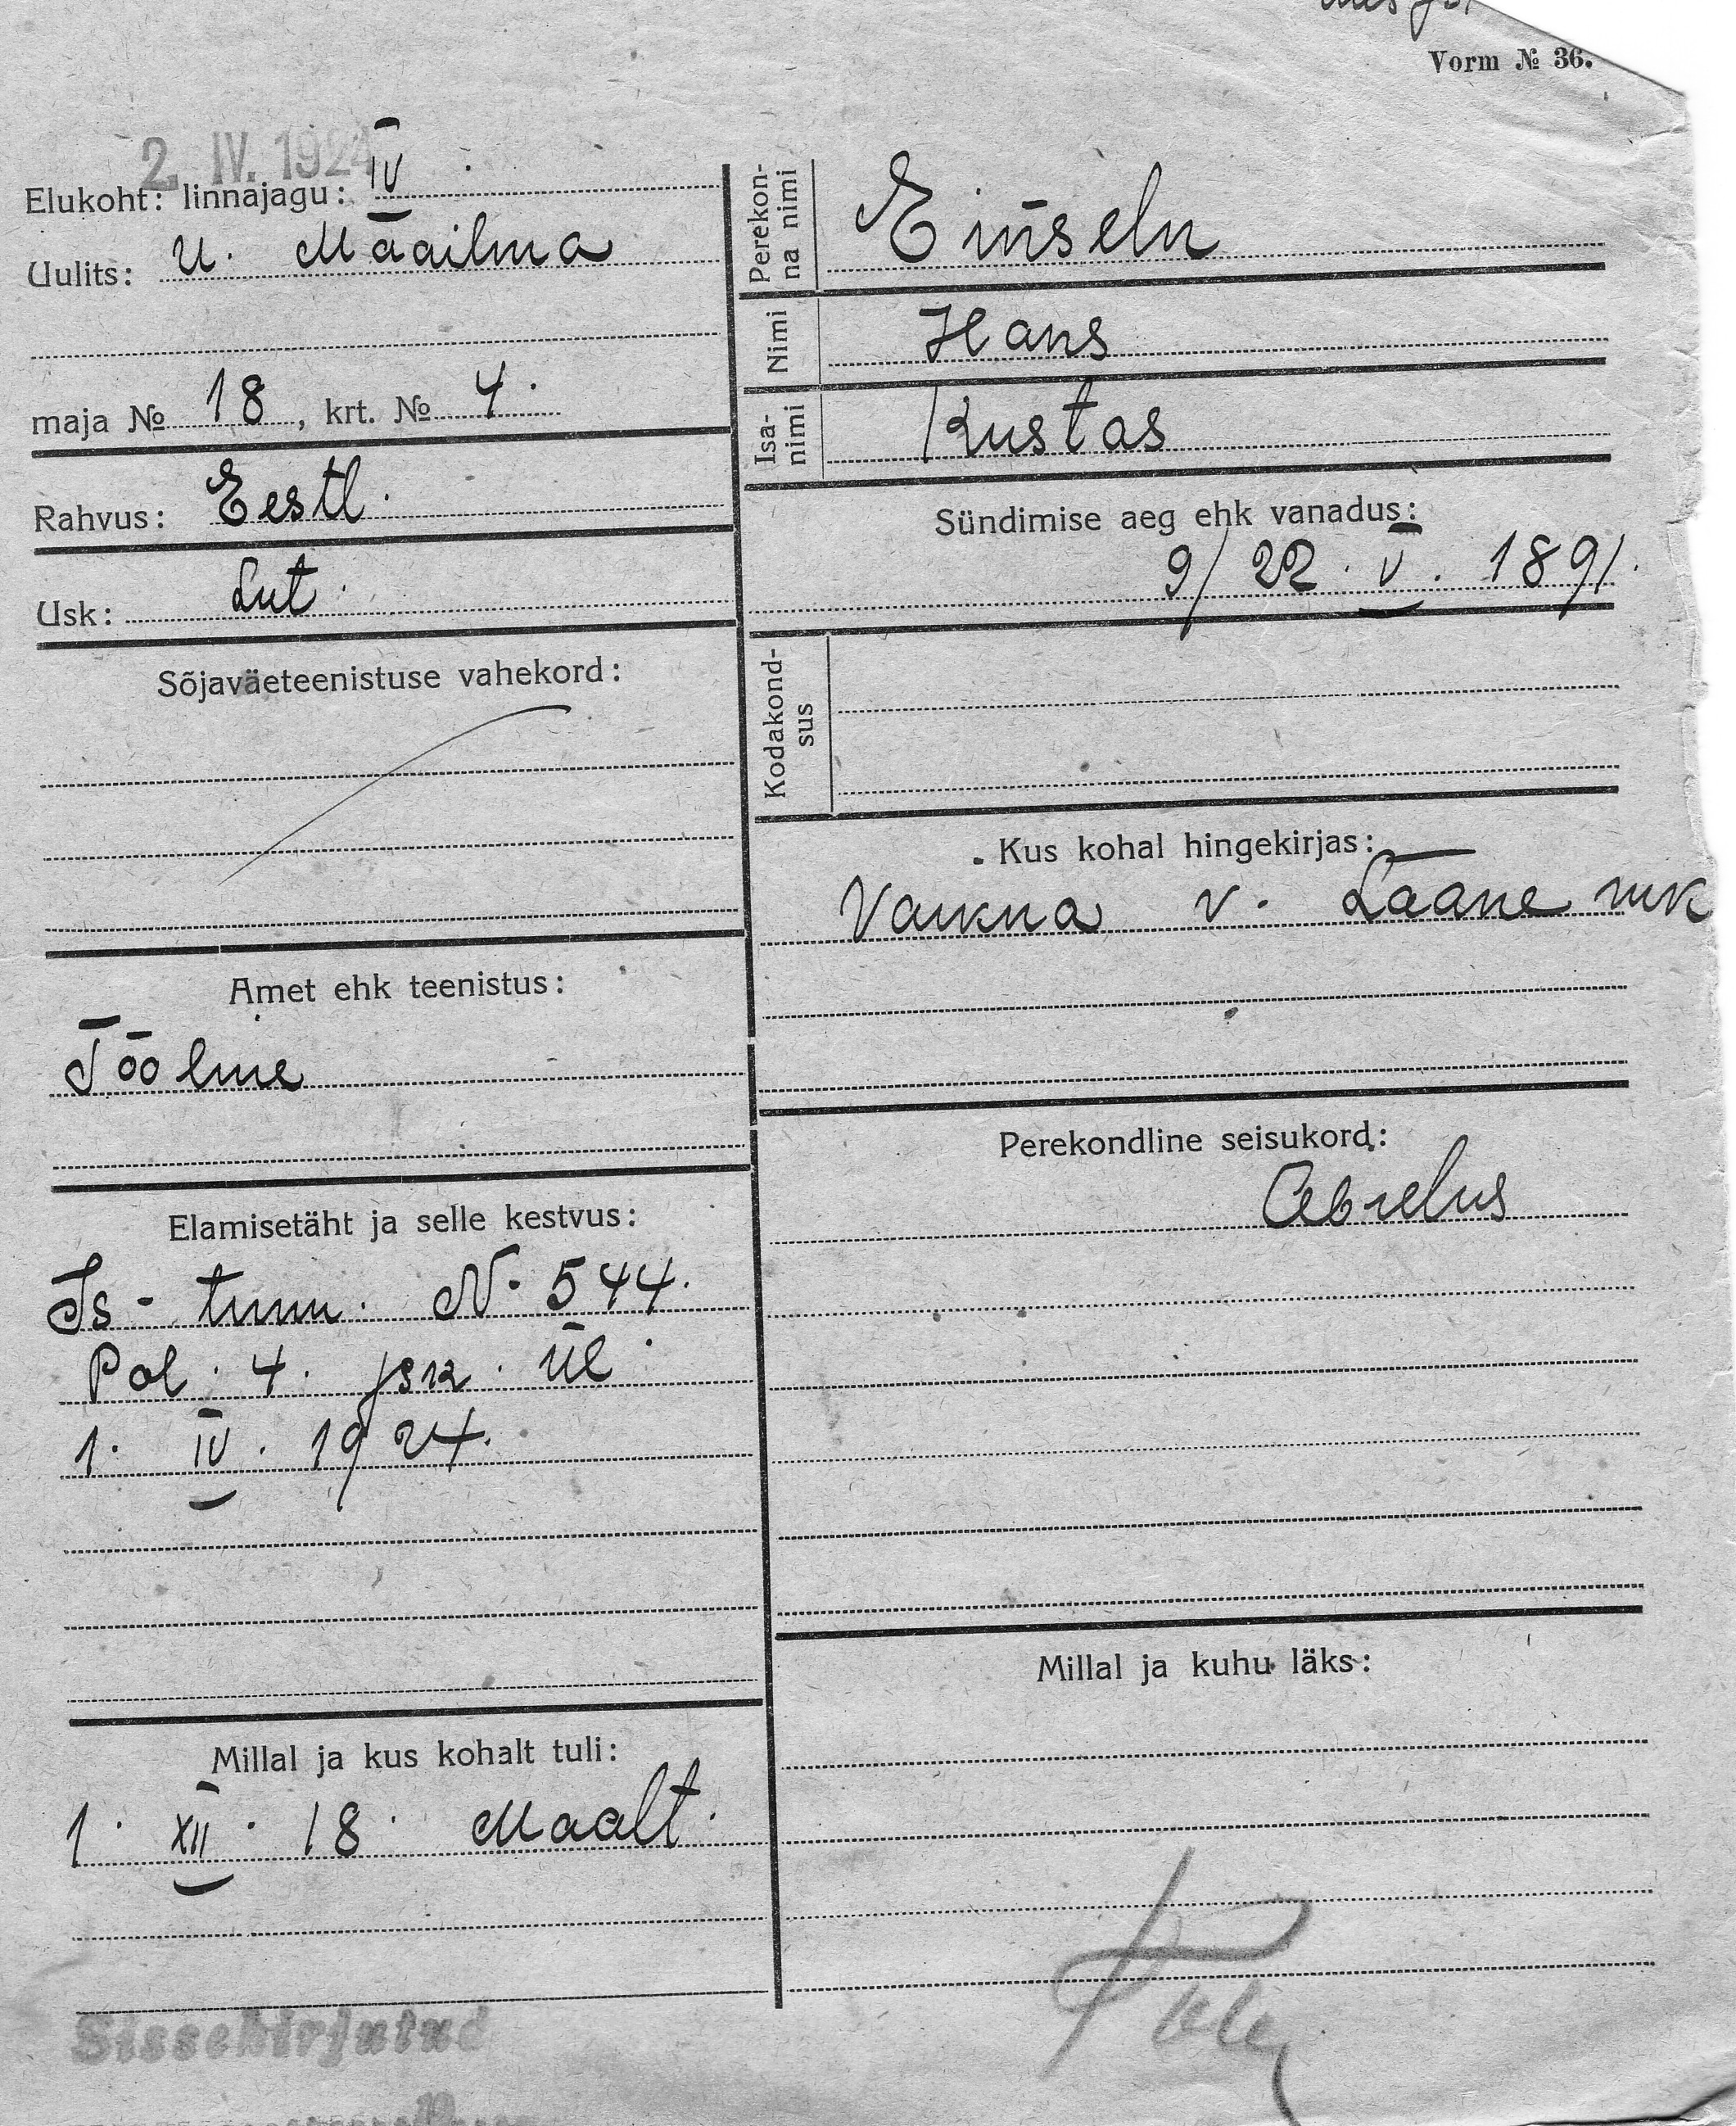 Vorm № 36.
2. IV. 1924
Elukoht: linnajagu: IV
Uulits: U. Maailma
maja № 18, krt. № 4.
Rahvus: Eestl.
Usk: Lut.
Sõjaväeteenistuse vahekord:
Amet ehk teenistus:
Töölme
Elamisetäht ja selle kestvus:
Is-tunn. N. 544.
Pol. 4. jsk. ül.
1. IV. 1924.
Millal ja kus kohalt tuli:
1. XII. 18. Maalt.
Sissekirjutud
Perekonna nimi Einseln
Nimi Hans
Isanimi Kustas
Sündimise aeg ehk vanadus:
9/22. V. 1891.
Kodakondsus
Kus kohal hingekirjas:
Vaikna v. Lääne mk
Perekondline seisukord:
Abielus
Millal ja kuhu läks: